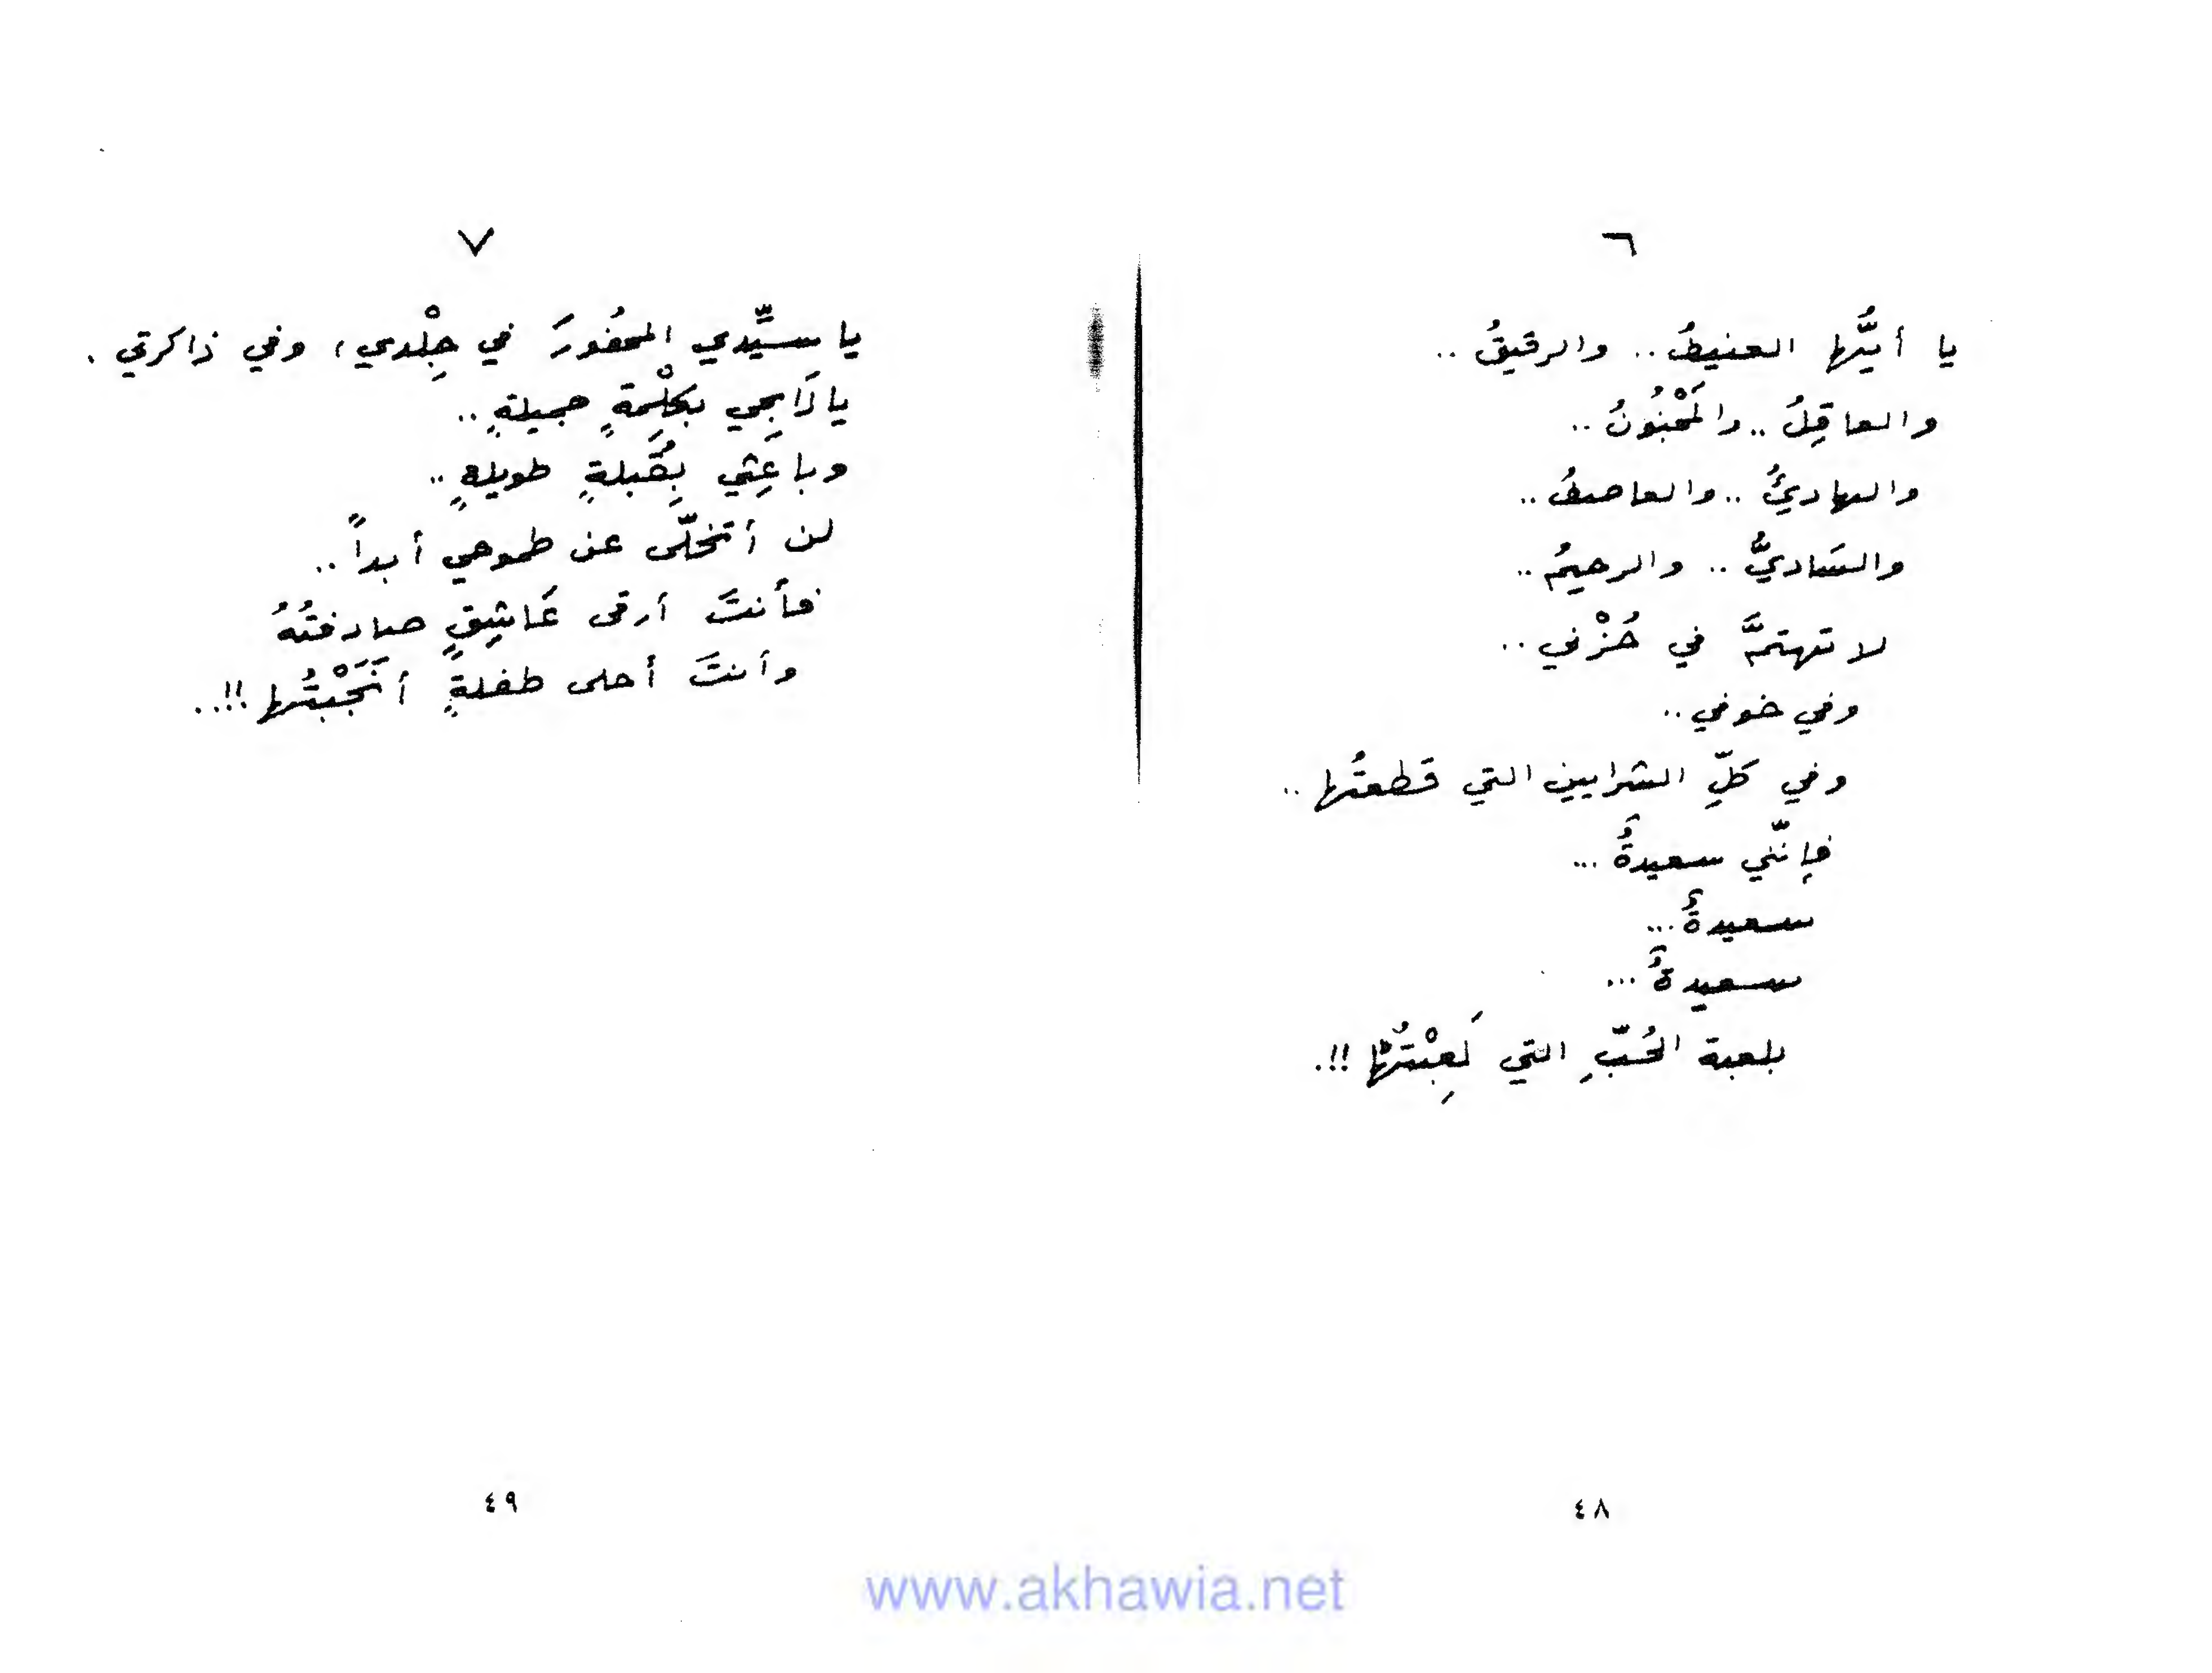 ٦
يا أيُّها العنيفُ.. والرقيقُ..
والعاقِلُ.. والمَجْنُونُ..
والهادئُ.. والعاصفُ..
والسَاديُّ.. والرحيمُ..
لا تهتمَّ في حُزْني..
وفي خوفي..
وفي كلِّ الشرايين التي قَطعتُها..
فإنّني سعيدةٌ...
سعيدةٌ...
سعيدةٌ...
بلعبة الحُبِّ التي لَعِبْتُها!!.
٤٨
٧
يا سيِّدي المحفُورَ في جِلْدي، وفي ذاكرتي.
يا ذَابحِي بكِلْمَةٍ جميلةٍ..
وباعِثي بِقُبلةٍ طويلةٍ..
لن أتخلّى عن طموحي أبداً..
فأنتَ أرقى عَاشِقٍ صادفتُهُ
وأنتَ أحلى طفلةٍ أنَجَبْتُها!!..
٤٩
www.akhawia.net